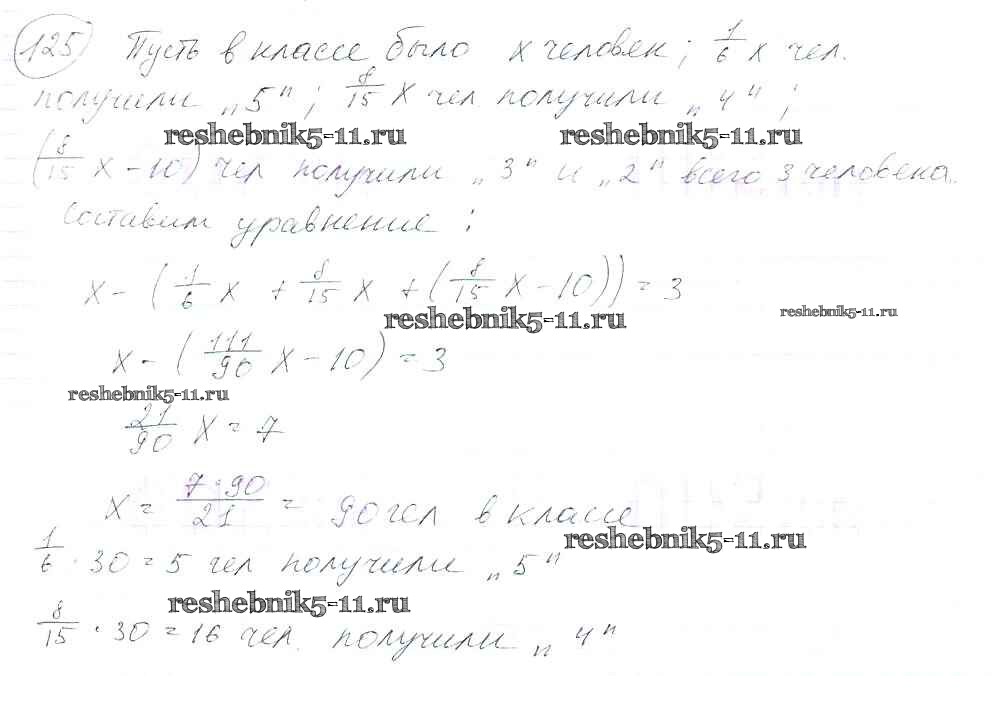 125 Пусть в классе было x человек; 1/6 x чел.
получили „5"; 8/15 x чел. получили „4";
reshebnik5-11.ru reshebnik5-11.ru
(8/15 x - 10) чел получили „3" и „2" всего 3 человека.
Составим уравнение:
x - (1/6 x + 8/15 x + (8/15 x - 10)) = 3
reshebnik5-11.ru reshebnik5-11.ru
x - (111/90 x - 10) = 3
reshebnik5-11.ru
21/90 x = 7
x = 7·90/21 = 90 чел в классе
reshebnik5-11.ru
1/6 · 30 = 5 чел получили „5"
reshebnik5-11.ru
8/15 · 30 = 16 чел. получили „4"